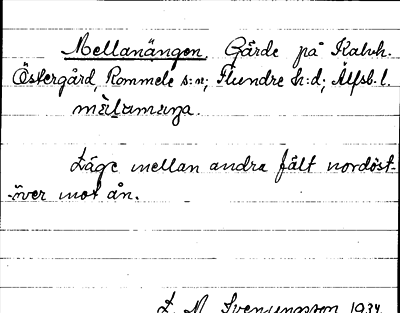 Mellanängen. Gärde på Kalvh.
Östergård, Rommele s:n; Flundre h:d; Älfsb. l.
Läge mellan andra fält nordöst-
-över mot ån.
L. M. Svenungsson 1934.